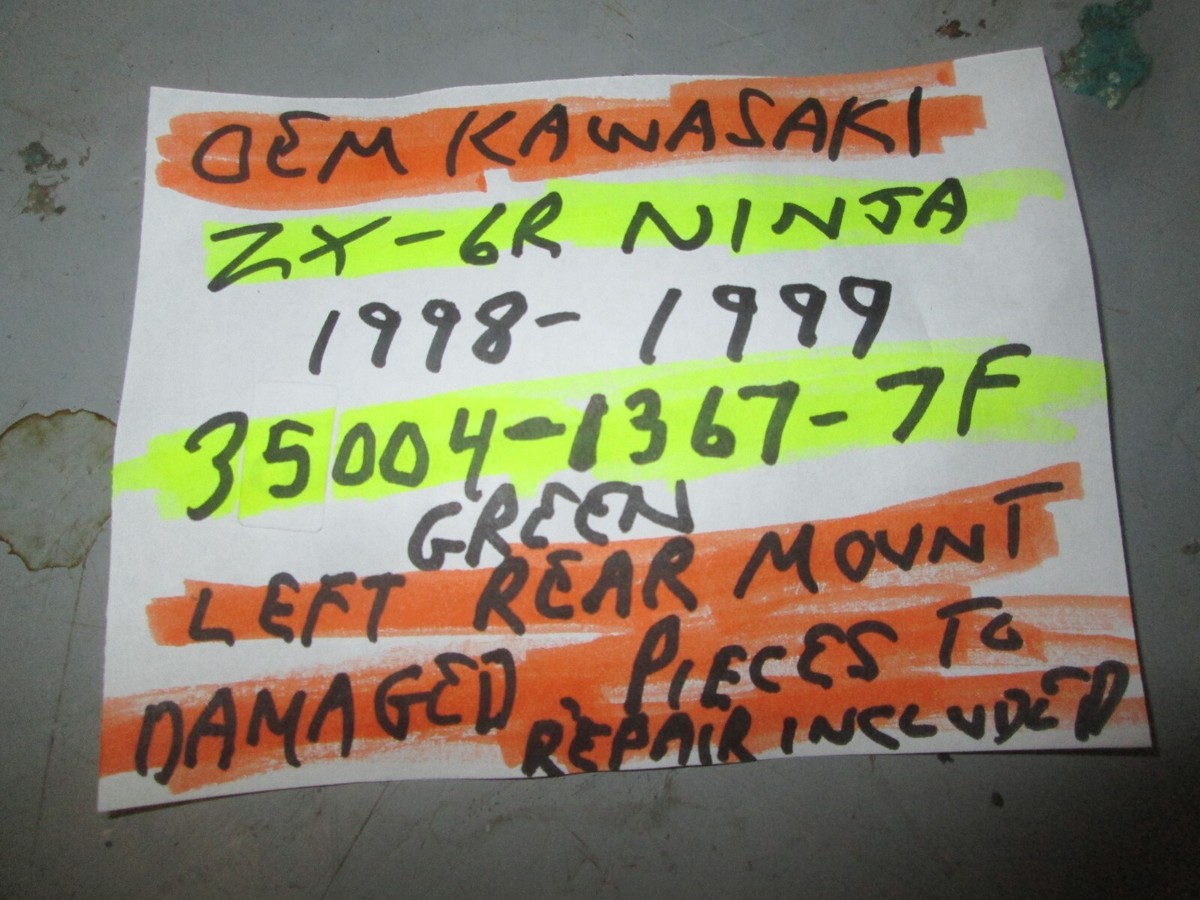 OEM KAWASAKI
ZX-6R NINJA
1998-1999
35004-1367-7F
GREEN
LEFT REAR MOUNT
DAMAGED. PIECES TO
REPAIR INCLUDED